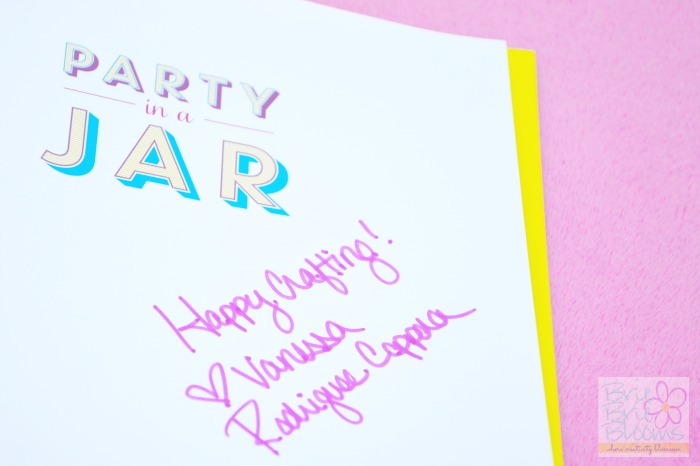 PARTY
in a
JAR
Happy Crafting!
♡ Vanessa
Rodriguez Coppola
Brie
Brie
Blooms
where creativity blossoms